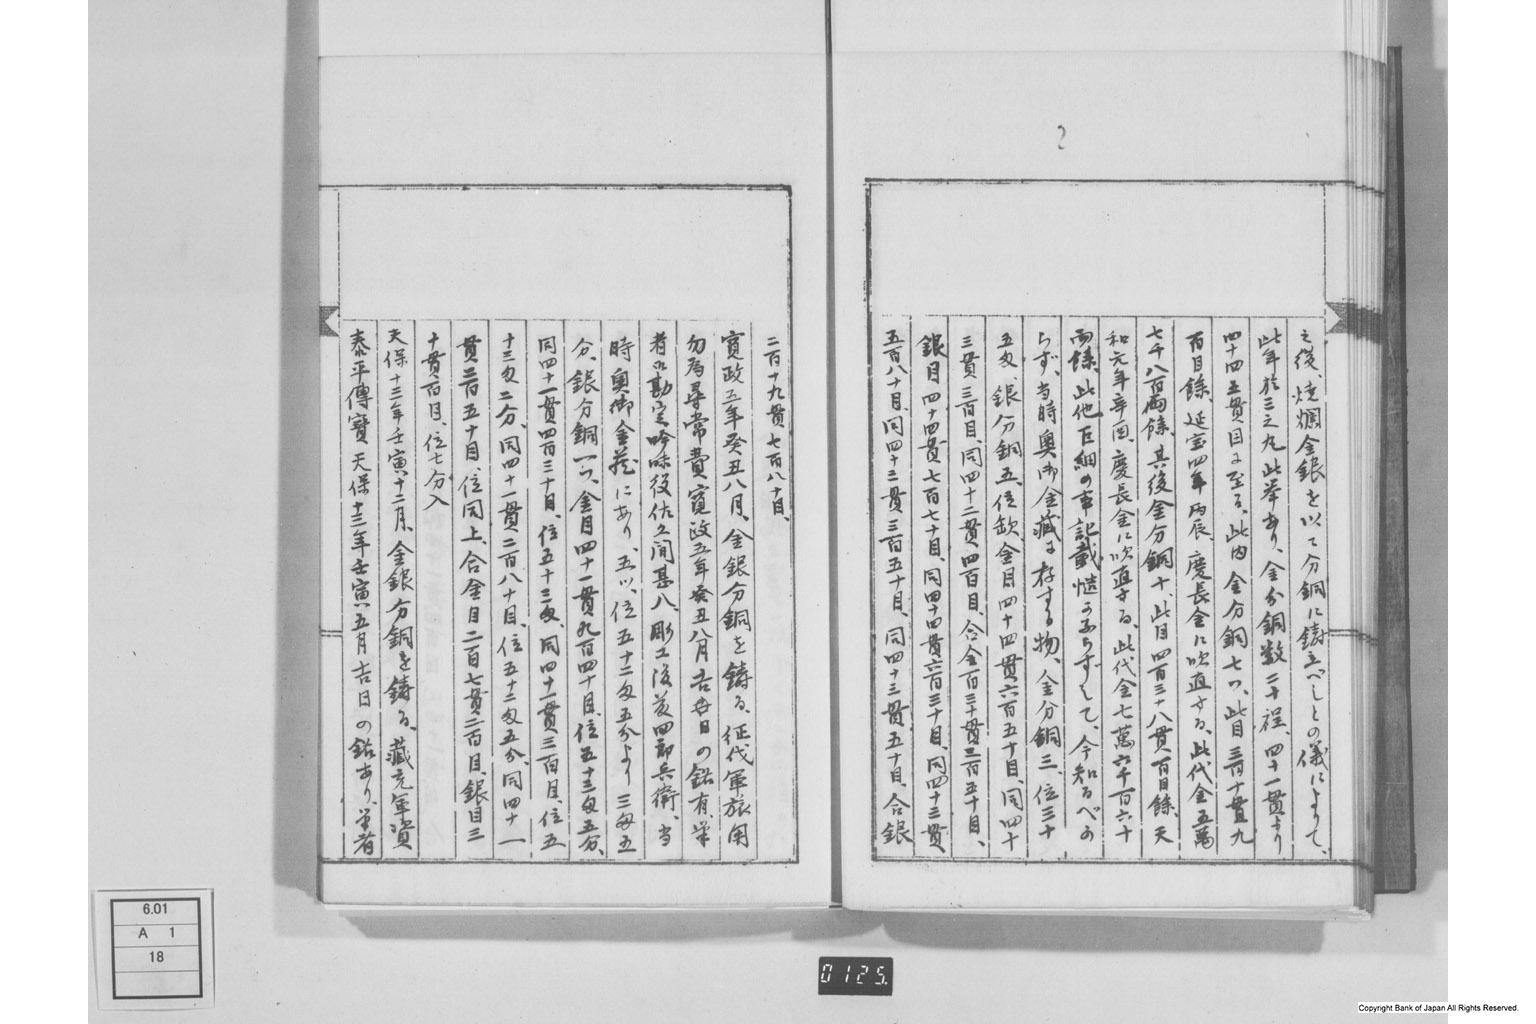 2
之後、燒爛金銀を以て分銅に鑄立べしとの儀によりて、
此年於三之丸此挙あり、金分銅数二十程、四十一貫より
四十四五貫目に至る、此内金分銅七つ、此目三百十貫九
百目餘、延宝四年丙辰、慶長金に吹直する、此代金五萬
七千八百兩餘、其後金分銅十、此目四百三十八貫一百目餘、天
和元年辛酉、慶長金に吹直する、此代金七萬六千百六十
兩餘、此他巨細の事記載慥ならずして、今知るべか
らず、当時奧御金藏に存する物、金分銅三、位三十
五匁、銀分銅五、位欽金目四十四貫六百五十目、同四十
三貫三百目、同四十二貫四百目、合金百三十貫三百五十目、
銀目四十四貫七百七十目、同四十四貫六百三十目、同四十三貫
五百八十目、同四十二貫三百五十目、同四十三貫五十目、合銀
二百十九貫七百八十目、
寛政五年癸丑八月、金銀分銅を鑄る、征伐軍旅用
勿為尋常費寛政五年癸丑八月吉日の銘有、掌
者は勘定吟味役佐久間甚八、彫工後藤四郎兵衛、当
時奧御金藏にあり、五つ、位五十二匁五分より三匁五
分、銀分銅一つ、金目四十一貫九百四十目、位五十三匁五分、
同四十一貫四百三十目、位五十三匁、同四十一貫三百目、位五
十三匁二分、同四十一貫二百八十目、位五十二匁五分、同四十一
貫二百五十目、位同上、合金目二百七貫二百目、銀目三
十貫百目、位七分入
天保十三年壬寅十二月、金銀分銅を鑄る、藏充軍資
泰平傳寶天保十三年壬寅五月吉日の銘あり、掌者
6.01
A 1
18
0125.
Copyright Bank of Japan All Rights Reserved.